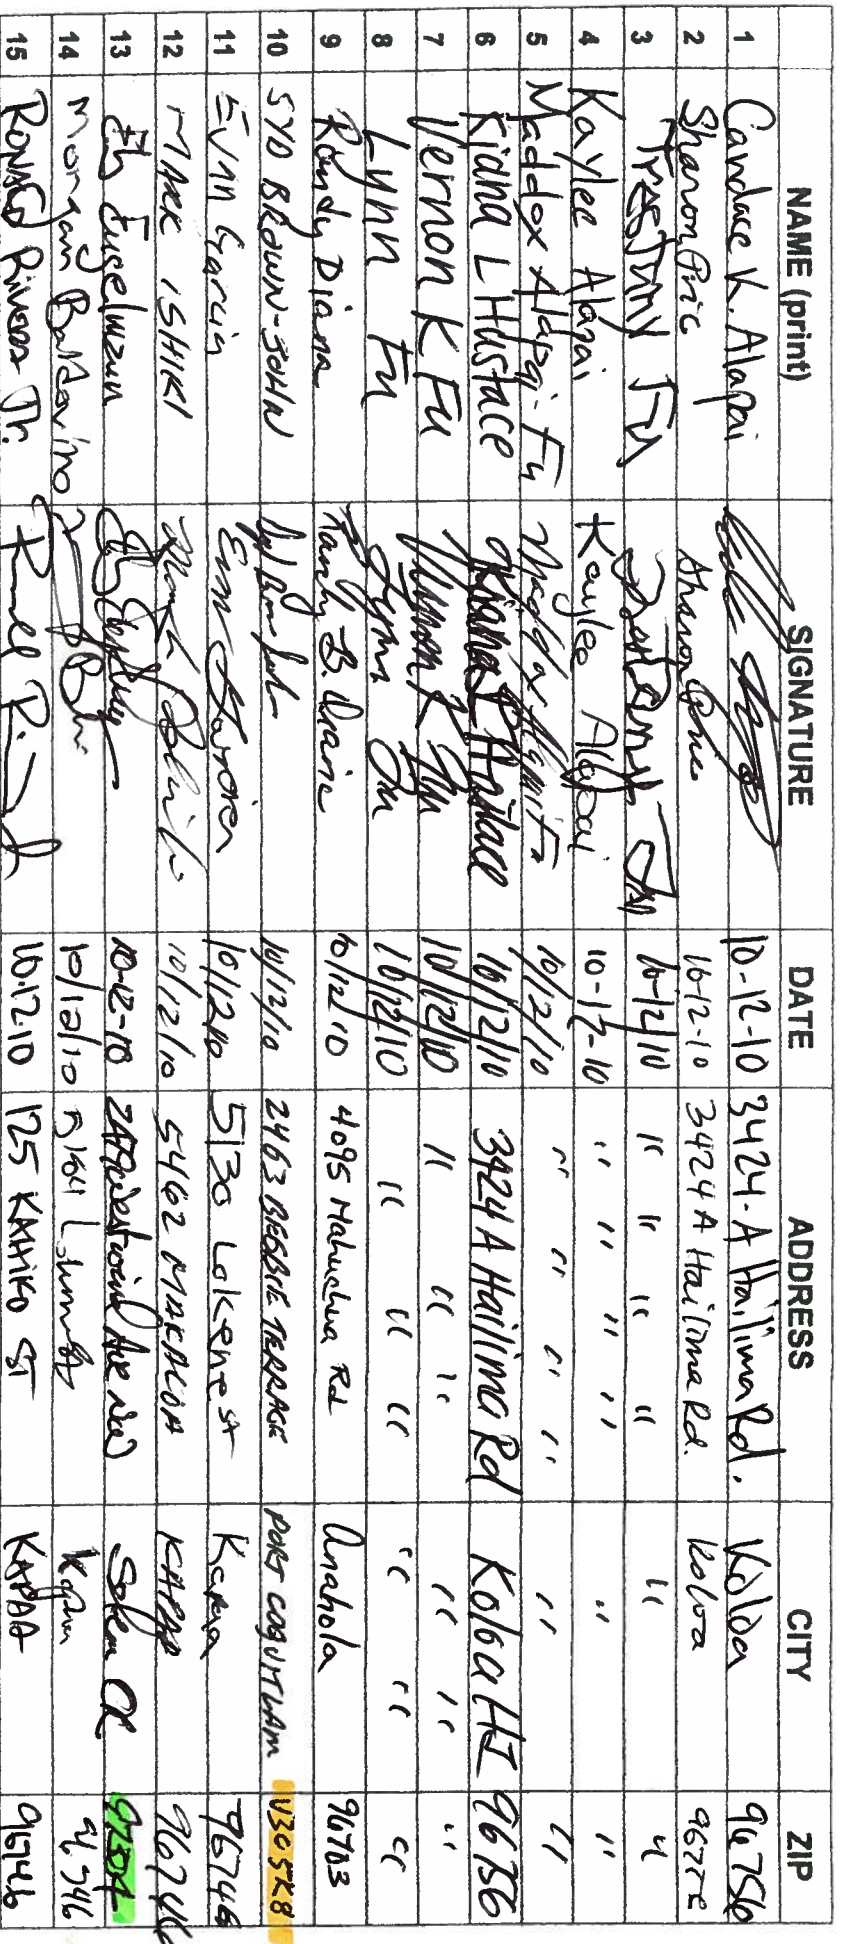 NAME (print) SIGNATURE DATE ADDRESS CITY ZIP
1 Candace K. Alapai 10-12-10 3424-A Hailima Rd. Koloa 96756
2 Sharon Aric Sharon 10-12-10 3424 A Hailima Rd. Koloa
3 Fu 10-12/10 " " " " " "
4 Kaylee Alapai Kaylee Alapai 10-12-10 " " " " " "
5 Maddox Alapai-Fu 10/12/10 " " " " " "
6 Kiana L Hustace Kiana L Hustace 10/12/10 3424 A Hailima Rd Koloa HI 96756
7 Vernon K Fu Vernon K Fu 10/12/10 " " " " " "
8 Lynn Fu Lynn Fu 10/12/10 " " " " " "
9 Randy Diana Randy B. Diana 10/12/10 4095 Mahuahua Rd Anahola 96703
10 SYD BROWN-JOHN 10/12/10 2463 BEGBIE TERRACE PORT COQUITLAM V3C 5K8
11 Evan Garcia 10/12/10 5130 Lokene st Kapaa 96746
12 MARK ISHIKI 10/12/10 5462 MAKALOA KAPAA 96746
13 Euselmzun 10-12-10 Ave NW Salem OR
14 Morgan Baldovino 10/12/10 Kapaa 96746
15 RONALD Rivera Jr. 10-12-10 125 KAHIKO ST KAPAA 96746